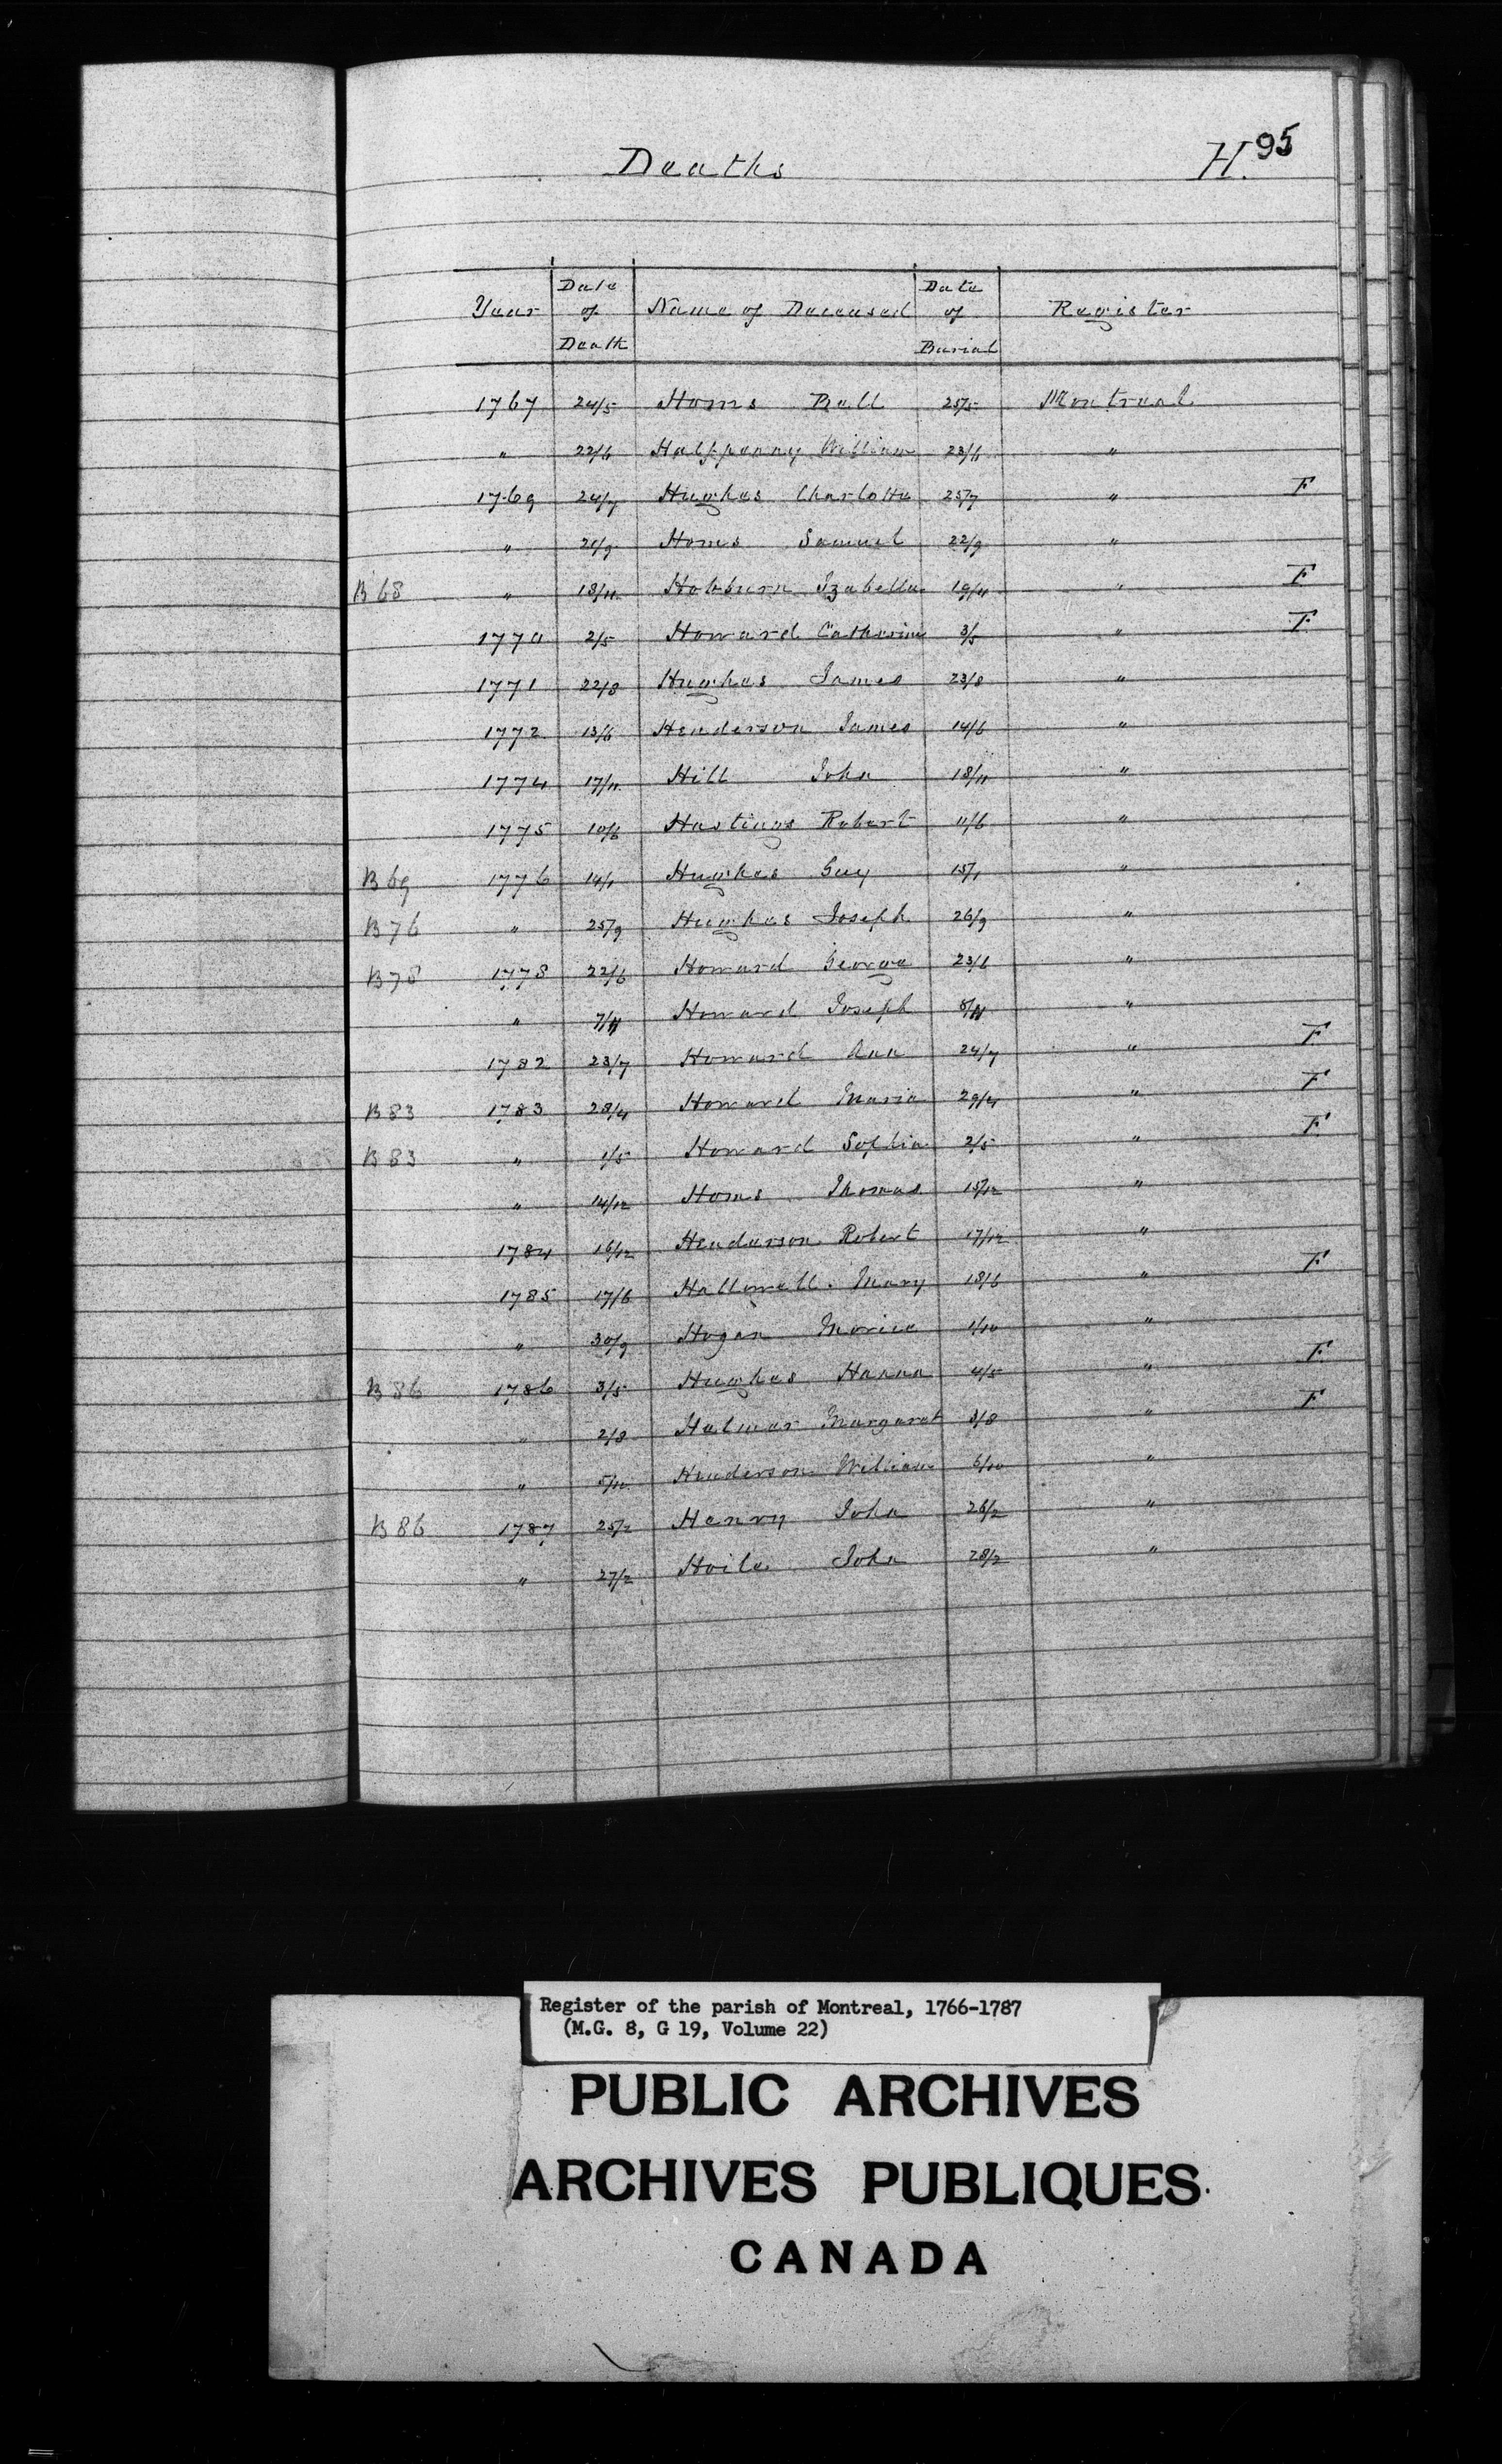 Deaths H. 95
Year Date of Death Name of Deceased Date of Burial Register
1767 24/5 Homs Ball 25/5 Montreal
" 22/6 Halppenny William 23/6 "
1769 24/7 Hughes Charlotte 25/7 " F
" 21/9 Homs Samuel 22/9 "
B 68 " 18/11 Hobburn Izabella 19/11 " F
1770 2/5 Howard Catherine 3/5 " F
1771 22/8 Hughes James 23/8 "
1772 13/6 Henderson James 14/6 "
1774 17/11 Hill John 18/11 "
1775 10/6 Hastings Robert 11/6 "
B 69 1776 14/1 Hughes Guy 15/1 "
B 76 " 25/9 Hughes Joseph 26/9 "
B 78 1778 22/6 Howard George 23/6 "
" 7/11 Howard Joseph 8/11 "
1782 23/7 Howard Ann 24/7 " F
B 83 1783 28/4 Howard Maria 29/4 " F
B 83 " 1/5 Howard Sophia 2/5 " F
" 14/12 Homs Thomas 15/12 "
1784 16/12 Henderson Robert 17/12 "
1785 17/6 Hallowell Mary 18/6 " F
" 30/9 Hogan Morice 1/10 "
B 86 1786 3/5 Hughes Hanna 4/5 " F
" 2/8 Halmer Margaret 3/8 " F
" 5/10 Henderson William 6/10 "
B 86 1787 25/2 Henry John 26/2 "
" 27/2 Hoile John 28/2 "
Register of the parish of Montreal, 1766-1787
(M.G. 8, G 19, Volume 22)
PUBLIC ARCHIVES
ARCHIVES PUBLIQUES
CANADA